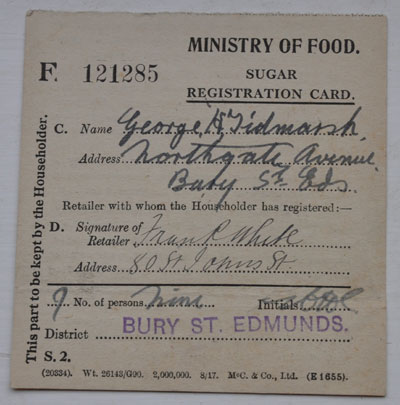 MINISTRY OF FOOD.
F 121285
SUGAR
REGISTRATION CARD.
This part to be kept by the Householder.
C. Name George H Tidmarsh
Address Northgate Avenue
Bury St Eds
Retailer with whom the Householder has registered:—
D. Signature of Retailer Frank White
Address 80 St Johns St
9 No. of persons nine Initials
District BURY ST. EDMUNDS.
S. 2.
(20334). Wt. 26143/G90. 2,000,000. 8/17. McC. & Co., Ltd. (E 1655).